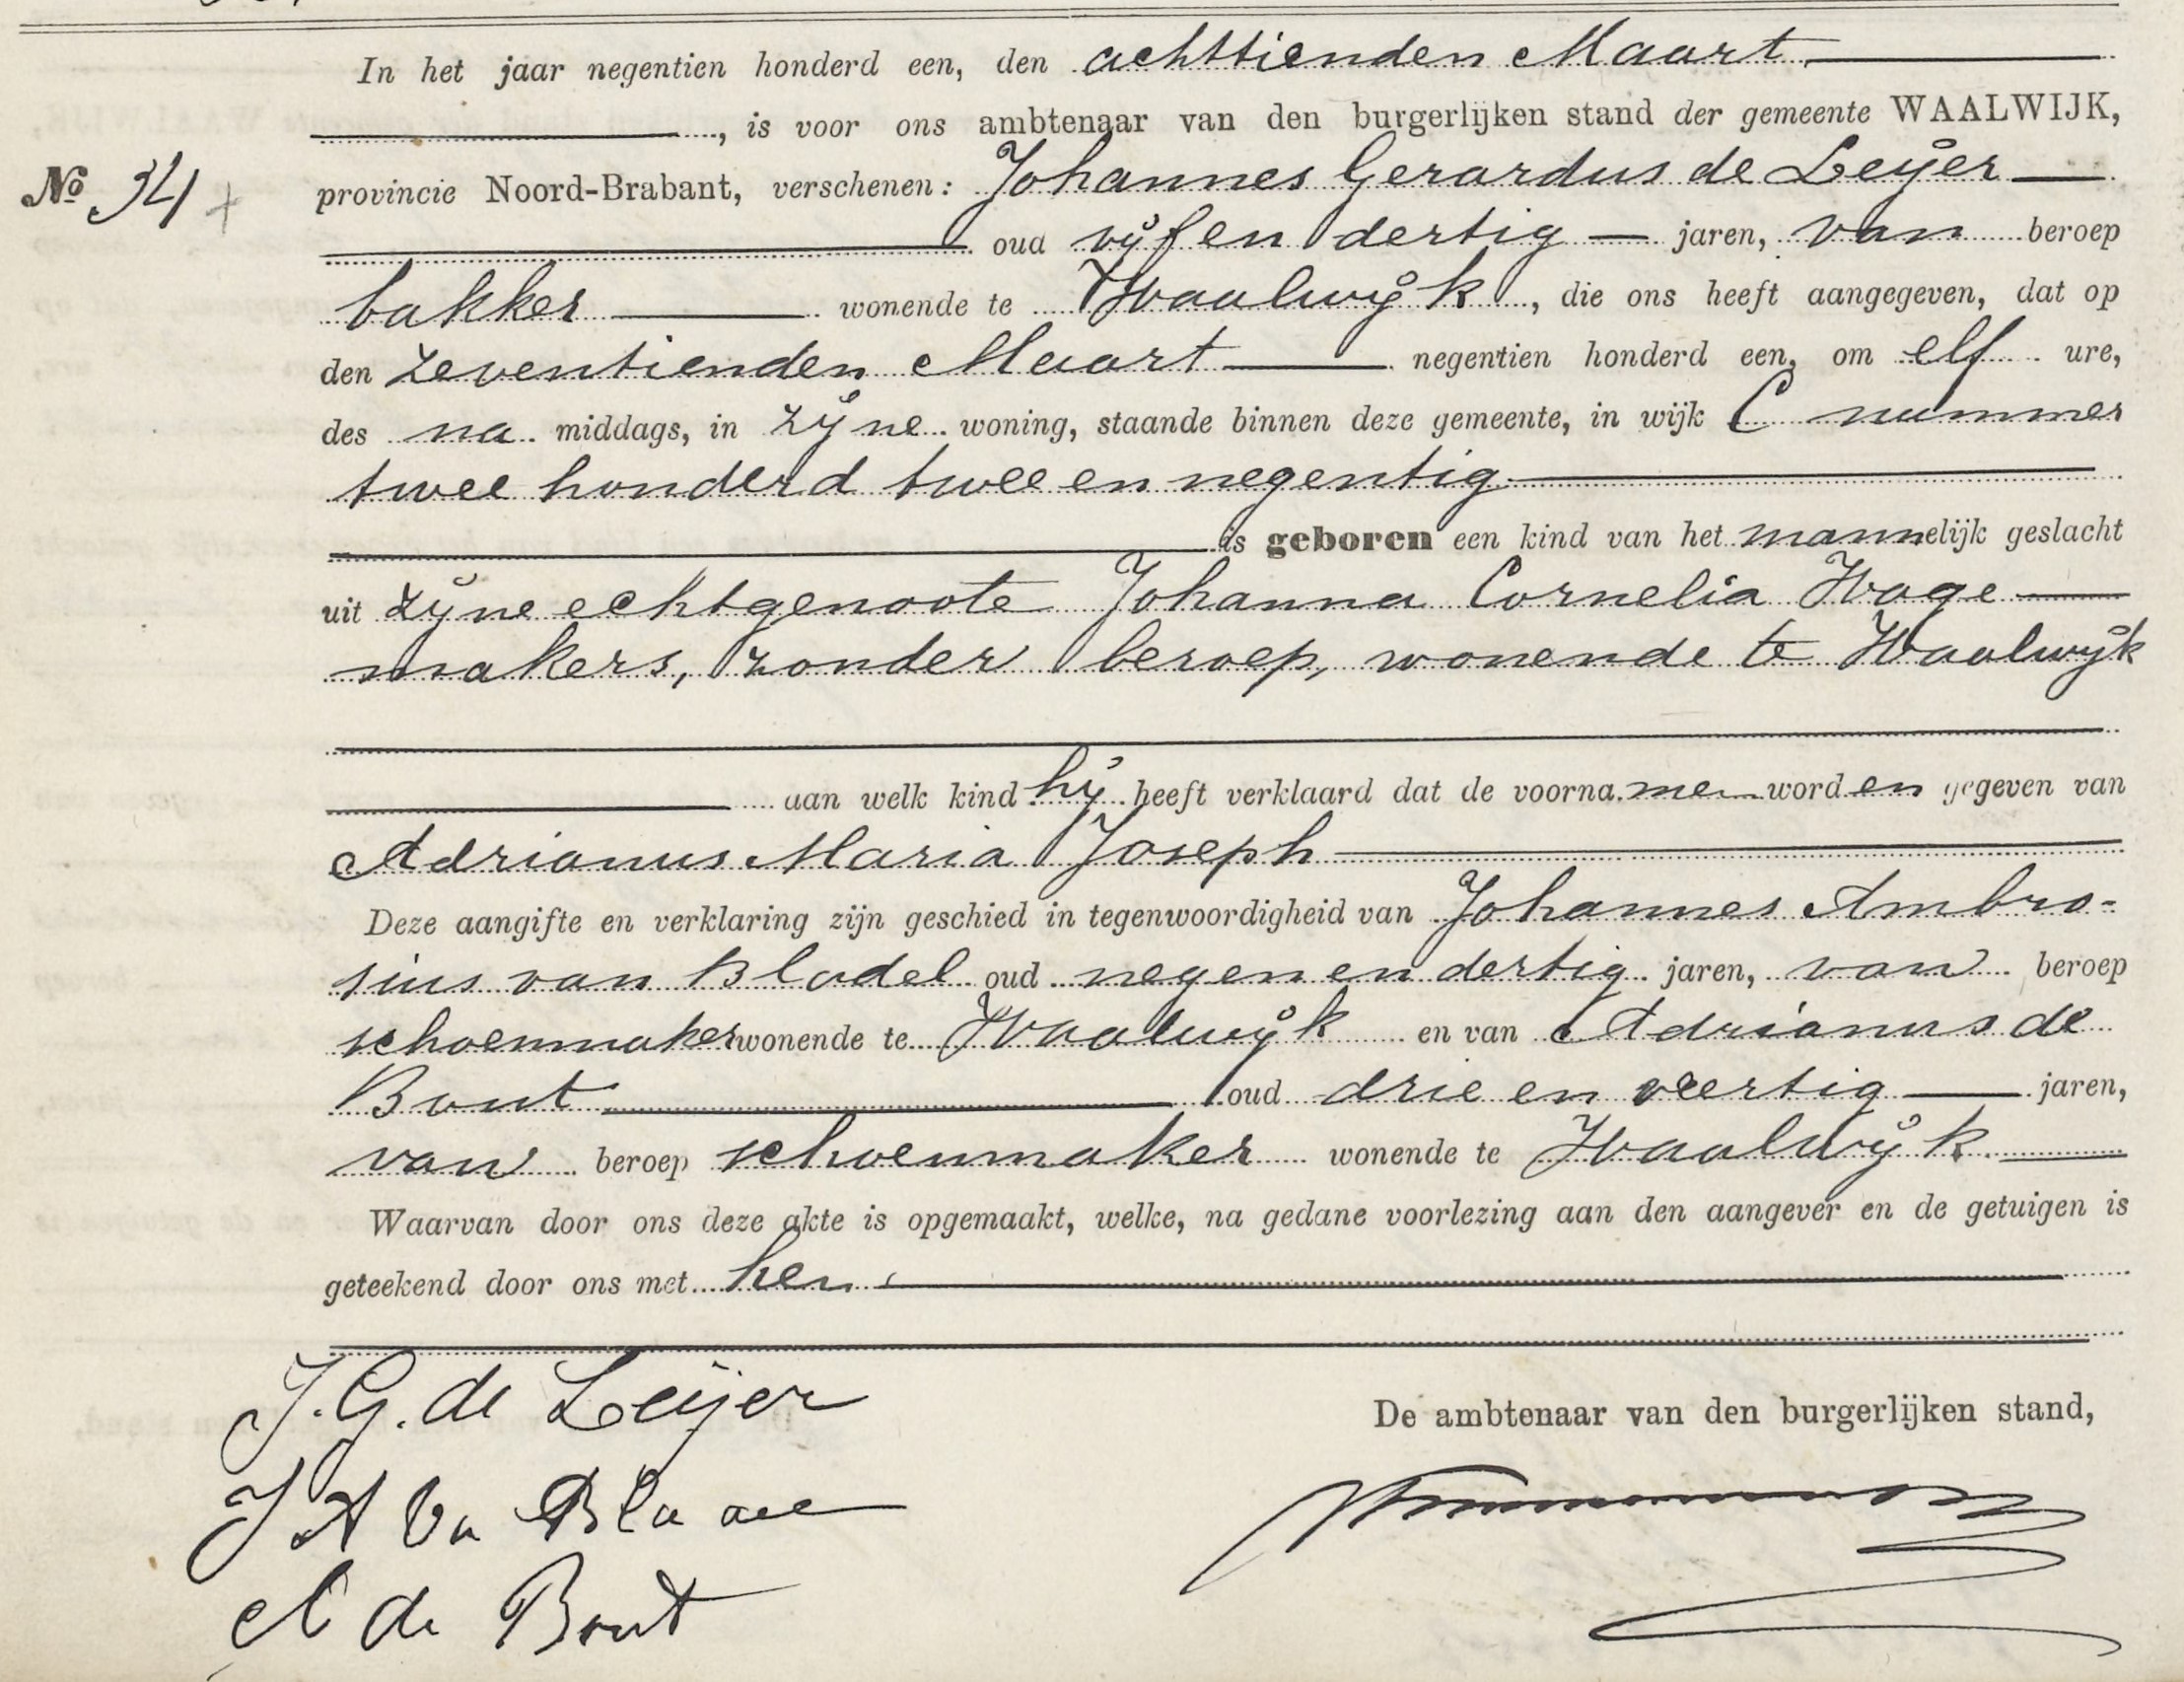 In het jaar negentien honderd een, den achttienden Maart
, is voor ons ambtenaar van den burgerlijken stand der gemeente WAALWIJK,
No 34 provincie Noord-Brabant, verschenen: Johannes Gerardus de Leijer
oud vijf en dertig jaren, van beroep
bakker wonende te Waalwijk, die ons heeft aangegeven, dat op
den zeventienden Maart negentien honderd een, om elf ure,
des na middags, in zijne woning, staande binnen deze gemeente, in wijk C nummer
twee honderd twee en negentig
is geboren een kind van het mannelijk geslacht
uit zijne echtgenoote Johanna Cornelia Wage
makers, zonder beroep, wonende te Waalwijk
aan welk kind hij heeft verklaard dat de voornamen worden gegeven van
Adrianus Maria Joseph
Deze aangifte en verklaring zijn geschied in tegenwoordigheid van Johannes Ambro-
sius van Bladel oud negen en dertig jaren, van beroep
schoenmaker wonende te Waalwijk en van Adrianus de
Bont oud drie en veertig jaren,
van beroep schoenmaker wonende te Waalwijk.
Waarvan door ons deze akte is opgemaakt, welke, na gedane voorlezing aan den aangever en de getuigen is
geteekend door ons met hen.
J. G. de Leijer
De ambtenaar van den burgerlijken stand,
J A v
A de Bont